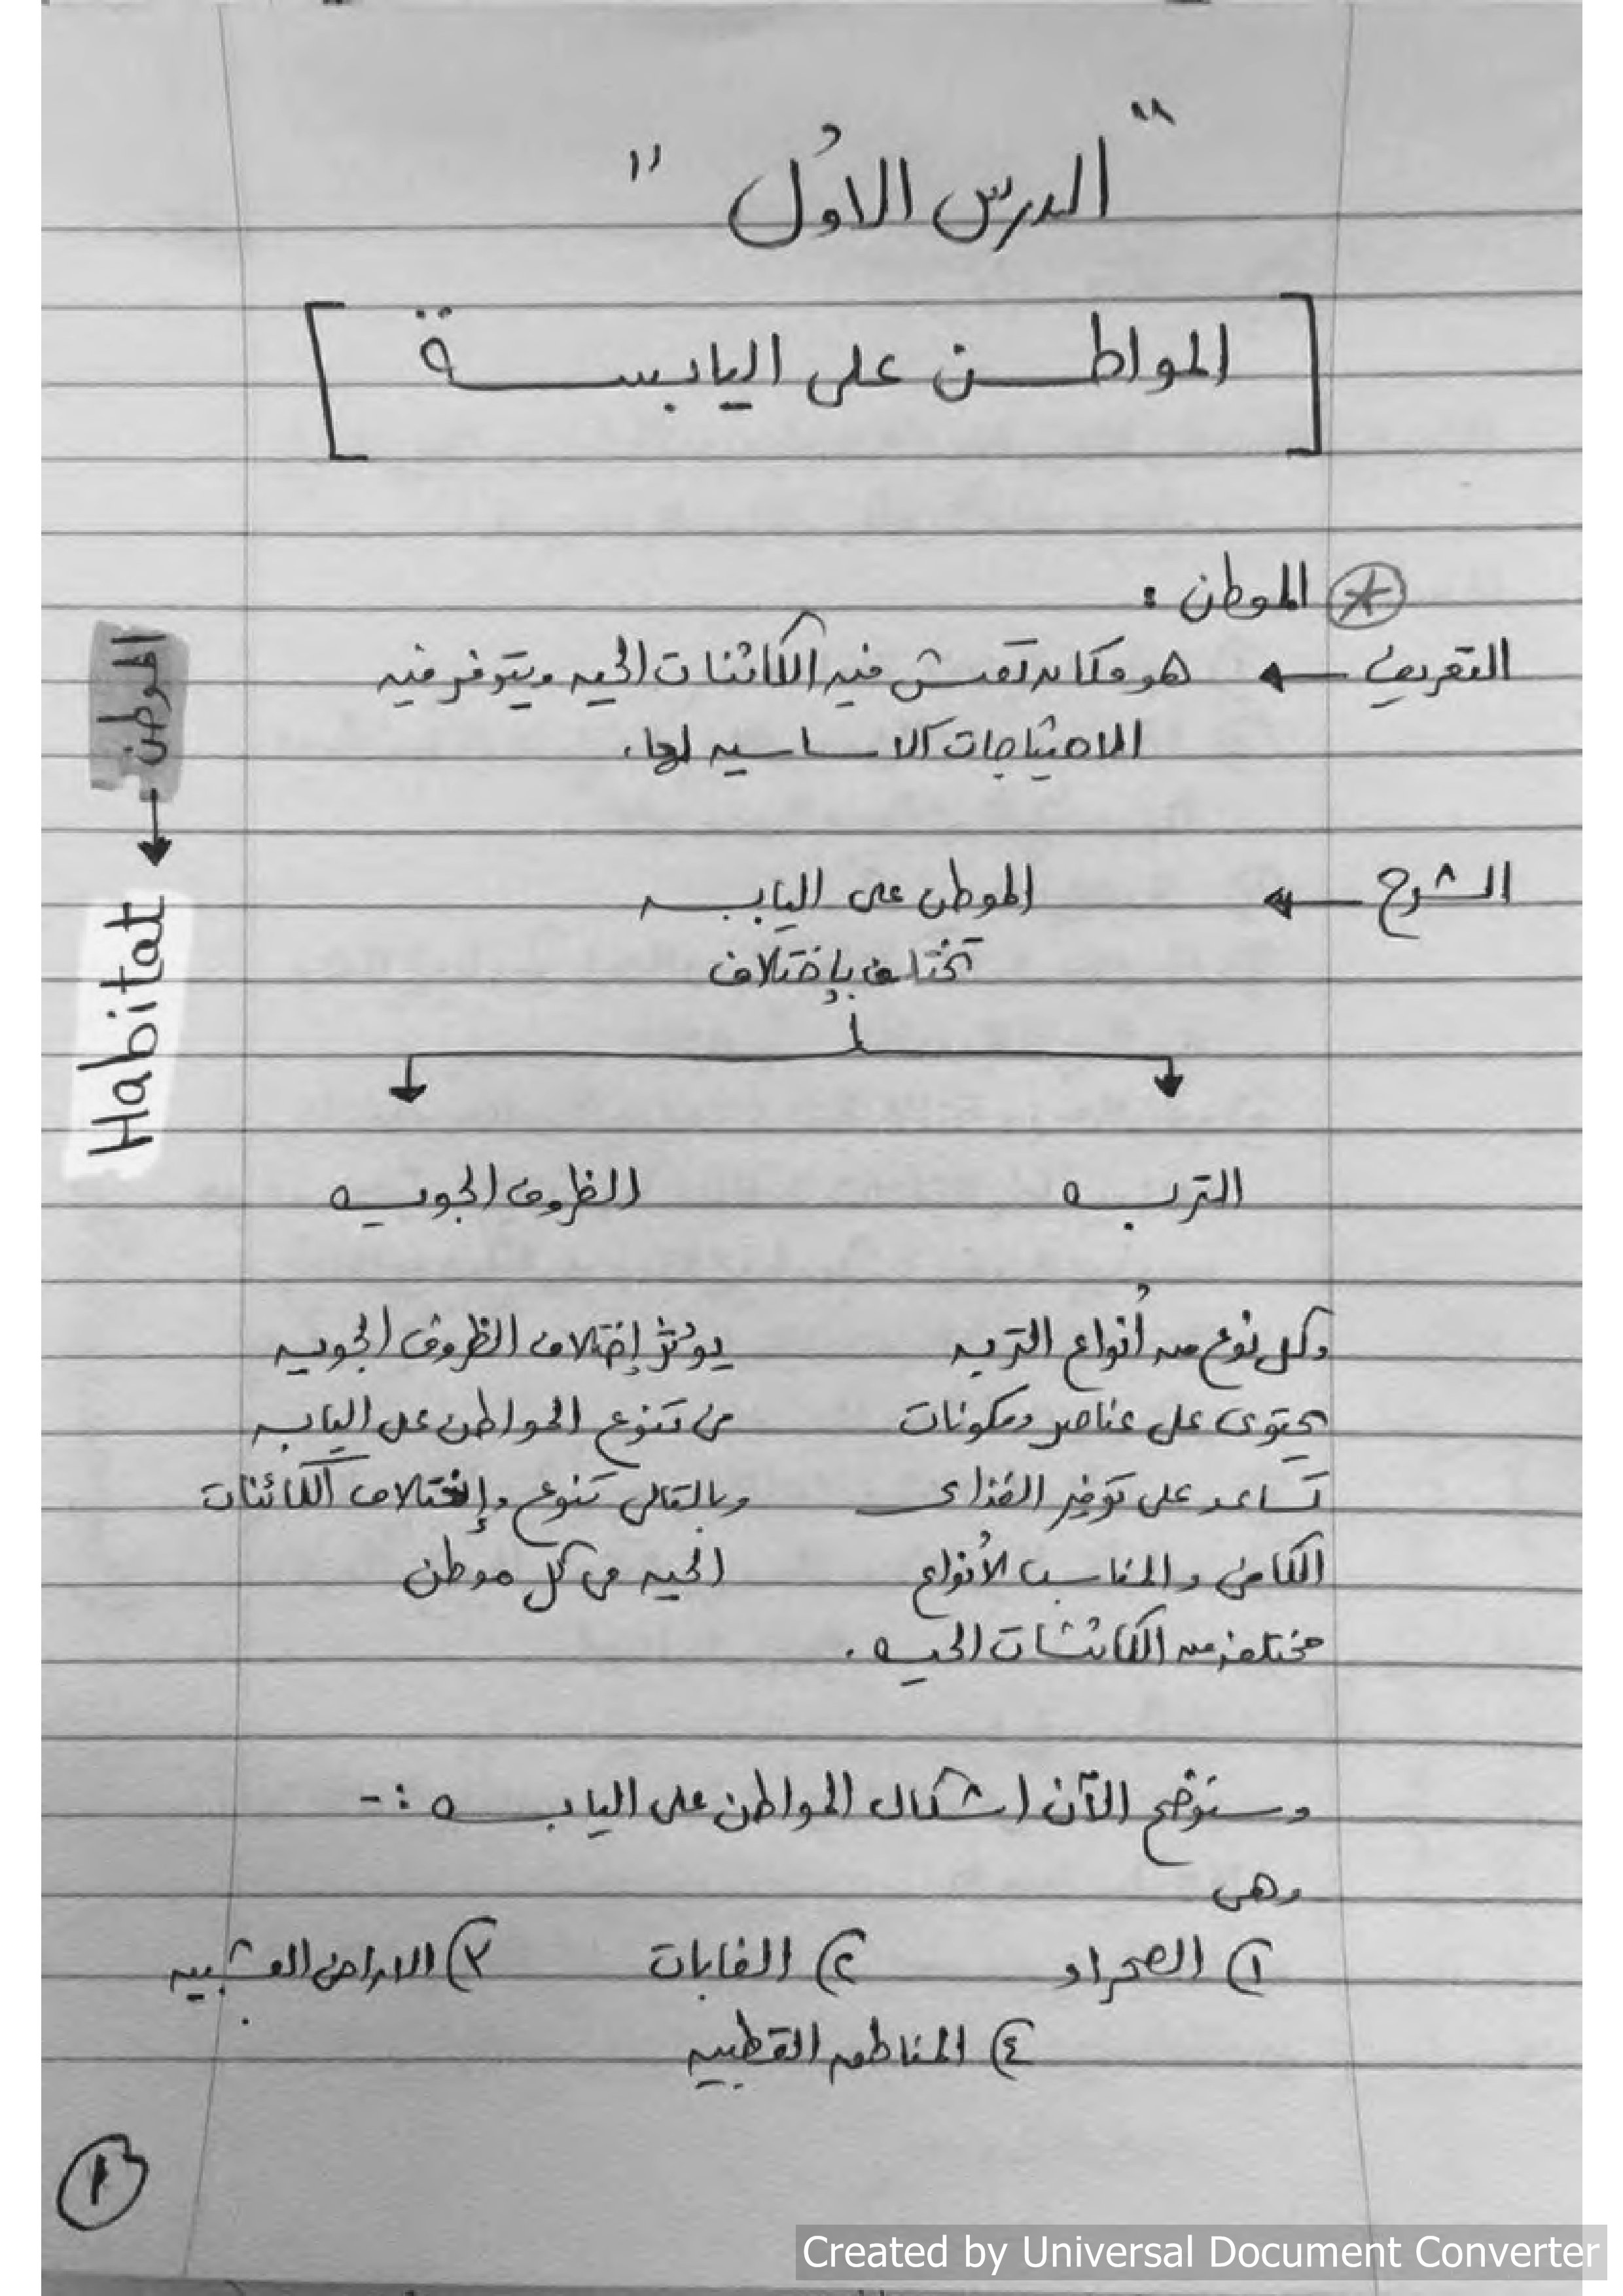 "الدرس الأول"
[المواطن على اليابسة]
* الموطن :
التعريف ← هو مكان تعيش فيه الكائنات الحيه ويتوفر فيه
الاحتياجات الاساسيه لها.
الموطن → Habitat
الشرح ← الموطن على اليابسه
تختلف بإختلاف
التربه
الظروف الجويه
وكل نوع من أنواع التربه
يحتوى على عناصر ومكونات
تساعد على توفير الغذاء
الكافى والمناسب لأنواع
مختلفه من الكائنات الحيه .
يؤثر إختلاف الظروف الجويه
فى تنوع المواطن على اليابسه
وبالتالى تنوع وإختلاف الكائنات
الحيه فى كل موطن
وسنوضح الآن اشكال المواطن على اليابسه :-
وهى
١) الصحراء ٢) الغابات ٣) الاراضى العشبيه
٤) المناطق القطبيه
١
Created by Universal Document Converter